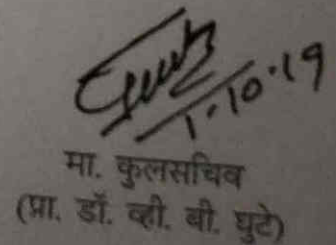 1.10.19
मा. कुलसचिव
(प्रा. डॉ. व्ही. बी. घुटे)